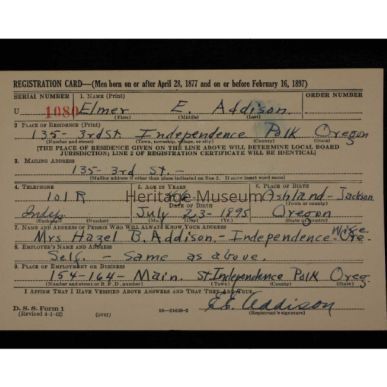 REGISTRATION CARD—(Men born on or after April 28, 1877 and on or before February 16, 1897)
SERIAL NUMBER 1. NAME (Print) ORDER NUMBER
U 1080 Elmer E. Addison
(First) (Middle) (Last)
2. PLACE OF RESIDENCE (Print)
135 - 3rd St. Independence Polk Oregon
(Number and street) (Town, township, village, or city) (County) (State)
[THE PLACE OF RESIDENCE GIVEN ON THE LINE ABOVE WILL DETERMINE LOCAL BOARD
JURISDICTION; LINE 2 OF REGISTRATION CERTIFICATE WILL BE IDENTICAL]
3. MAILING ADDRESS
135 - 3rd St. -
(Mailing address if other than place indicated on line 2. If same insert word same)
4. TELEPHONE 5. AGE IN YEARS 6. PLACE OF BIRTH
101R Ashland - Jackson
Heritage Museum
DATE OF BIRTH
Indep. July 23 - 1895 Oregon
7. NAME AND ADDRESS OF PERSON WHO WILL ALWAYS KNOW YOUR ADDRESS
Wife
Mrs Hazel B. Addison. - Independence - Ore.
8. EMPLOYER'S NAME AND ADDRESS
Self - Same as above.
9. PLACE OF EMPLOYMENT OR BUSINESS
154-164 - Main. St Independence Polk Oreg.
(Number and street or R. F. D. number) (Town) (County) (State)
I AFFIRM THAT I HAVE VERIFIED ABOVE ANSWERS AND THAT THEY ARE TRUE.
E.E. Addison
D. S. S. Form 1
(Revised 4-1-42) (over) (Registrant's signature)